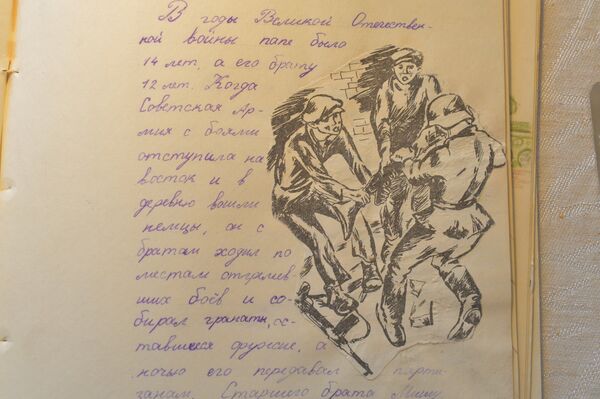 В годы Великой Отечествен-
ной войны папе было
14 лет, а его брату
12 лет. Когда
Советская Ар-
мия с боями
отступила на
восток и в
деревню вошли
немцы, он с
братом ходил по
местам отгремев-
ших боёв и со-
бирал гранаты, ос-
тавшееся оружие, а
ночью его передавал парти-
занам. Старшего брата Мишу